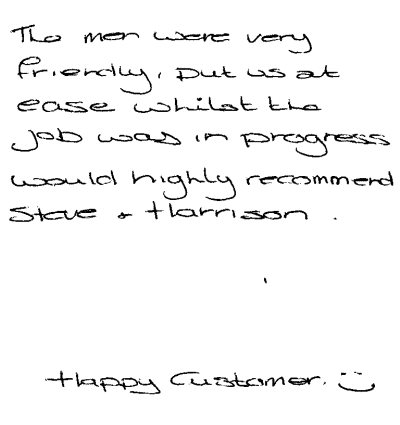 The men were very
friendly, put us at
ease whilst the
job was in progress
would highly recommend
Steve + Harrison .
Happy Customer. :)